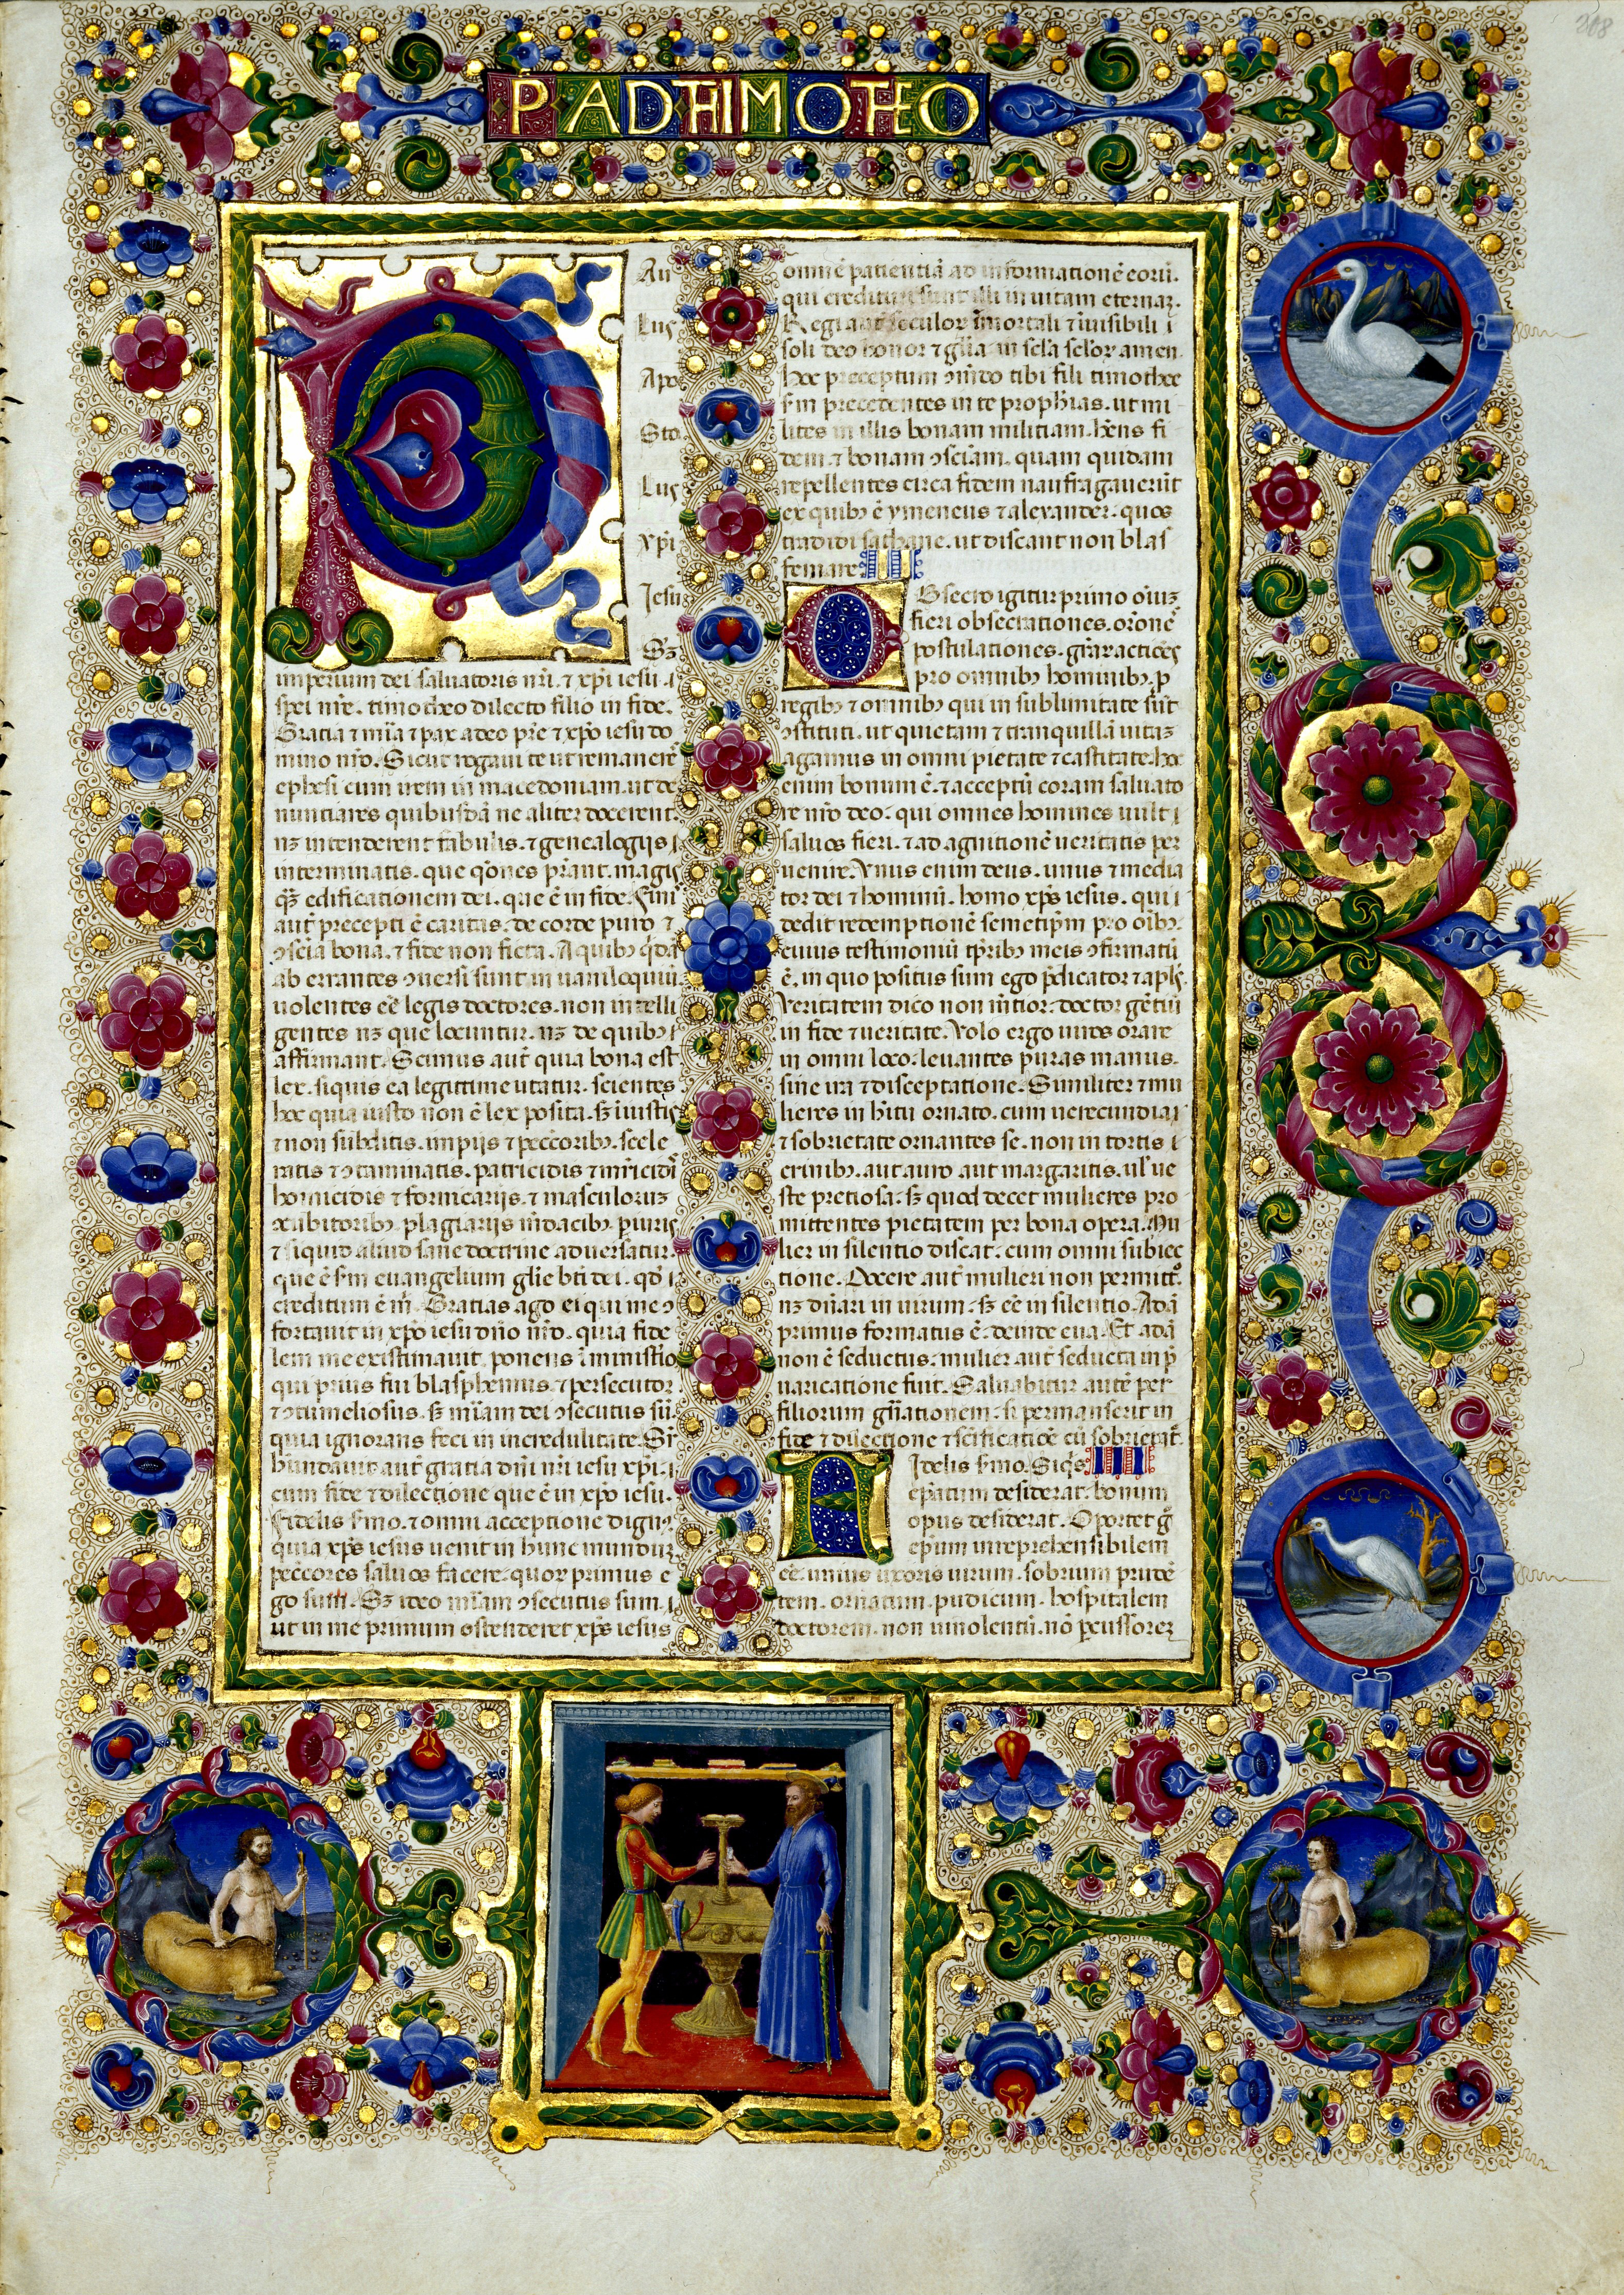 P AD THIMOTEO
208
Pau
lus
Apo
Sto
lus
xp̄i
Jesu
Sʒ
imperium dei saluatoris nr̄i. ⁊ xp̄i iesu. i
spei nr̄e. timotheo dilecto filio in fide.
Gracia ⁊ mīa ⁊ pax a deo pr̄e ⁊ xp̄o iesu do
mino nr̄o. Sicut rogaui te ut remanerē
ephesi cum irem in macedoniam. ut de
nuntiares quibusdā ne aliter docerent.
nʒ intenderent fabulis. ⁊ genealogijs i
interminatis. que q̄ones p̄rant. magis
qʒ̄ edificationem dei. que ē in fide. Fini
aut̄ precepti ē caritas. de corde puro ⁊
ꝯsciā bona. ⁊ fide non ficta. A quibꝫ q̄dā
ab errantes ꝯuersi sunt in uaniloquiū.
uolentes eē legis doctores. non intelli
gentes nʒ que locuntur. nʒ de quibꝫ i
affirmant. Scimus aut̄ quia bona est
lex. siquis ea legittime utatur. scientes
hoc quia iusto non ē lex posita. sʒ iīustis
⁊ non subditis. impijs ⁊ peccōribꝫ. scele
ratis ⁊ ꝯtaminatis. patricidis ⁊ mr̄icidis
homicidis ⁊ fornicarijs. ⁊ masculoruʒ
ꝯcubitoribꝫ. plagiarijs m̄dacibꝫ. p̄iuris
⁊ siquid aliud sane doctrine aduersatur.
que ē sm̄ euangelium glīe bt̄i dei. qd̄ i
creditum ē m̄. Gracias ago ei qui me ꝯ
fortauit in xp̄o iesu dn̄o nr̄o. quia fide
lem me existimauit. ponens ī ministīo
qui prius fui blasphemus. ⁊ persecutor.
⁊ ꝯtumeliosus. sʒ mīam dei ꝯsecutus sū.
quia ignorans feci in incredulitate. Suꝑ
hundauit aut̄ gratia dn̄i nr̄i iesu xp̄i. i
cum fide ⁊ dilectione que ē in xp̄o iesu.
Fidelis s̄mo. ⁊ omni acceptione dignꝰ.
quia xp̄s iesus uenit in hunc munduʒ
peccōres saluos facere. quoꝝ primus e
go sum. Sʒ ideo mīam ꝯsecutus sum. i
ut in me primum ostenderet xp̄s iesus
omnē patientiā ad informationē eoruꝫ.
qui credituri sunt illi in uitam eternaʒ.
Regi aut̄ seculoꝝ īmortali ⁊ īuisibili i
soli deo honor ⁊ glīa in scl̄a scl̄oꝝ amen.
Hoc preceptum ꝯm̄do tibi fili timothee
sm̄ precedentes in te prophīas. ut mi
lites in illis bonam militiam. hn̄s fi
dem ⁊ bonam ꝯsciām. quam quidam
repellentes circa fidem naufragauerūt
ex quibꝫ ē ymeneus ⁊ alexander. quos
tradidi sathane. ut discant non blas
femare. II
Obsecro igitur primo oīuʒ
fieri obsecrationes. orōnes
postulationes. gr̄aꝝ actiōes
pro omnibꝫ hominibꝫ. p
regibꝫ ⁊ omnibꝫ qui in sublimitate sūt
ꝯstituti. ut quietam ⁊ tranquillā uitaʒ
agamus in omni pietate ⁊ castitate. hoc
enim bonum ē. ⁊ acceptū coram saluato
re nr̄o deo. qui omnes homines uult i
saluos fieri. ⁊ ad agnitionē ueritatis per
uenire. Vnus enim deus. unus ⁊ media
tor dei ⁊ hominū. homo xp̄s iesus. qui i
dedit redemptionē semetip̄m pro oībꝫ.
cuius testimoniū tp̄ribꝫ meis ꝯfirmatū
ē. in quo positus sum ego p̄dicator ⁊ apl̄s.
Veritatem dico non m̄tior. doctor gētiū
in fide ⁊ ueritate. Volo ergo uiros orare
in omni loco. leuantes puras manus.
sine ira ⁊ disceptatione. Similiter ⁊ mu
lieres in hītu ornato. cum uerecundia i
⁊ sobrietate ornantes se. non in tortis i
crinibꝫ. aut auro aut margaritis. ul̄ ue
ste pretiosa. sʒ quod decet mulieres pro
mittentes pietatem per bona opera. Mu
lier in silentio discat. cum omni subiec
tione. Docere aut̄ mulieri non permitto.
nʒ dn̄ari in uirum. sʒ eē in silentio. Adā
primus formatus ē. deinde eua. Et adā
non ē seductus. mulier aut̄ seducta in p̄
uaricatione fuit. Saluabitur autē per
filiorum gn̄ationem. si permanserit in
fide ⁊ dilectione ⁊ sc̄ificatiōe cū sobrietat̄.
Fidelis s̄mo. Siqs̄ III
ep̄atum desiderat. bonum
opus desiderat. Oportet g̊
ep̄um irreprehensibilem
eē. unius uxoris uirum. sobrium prudē
tem. ornatum. pudicum. hospitalem
doctorem. non uinolentū. nō ꝑcussoreʒ